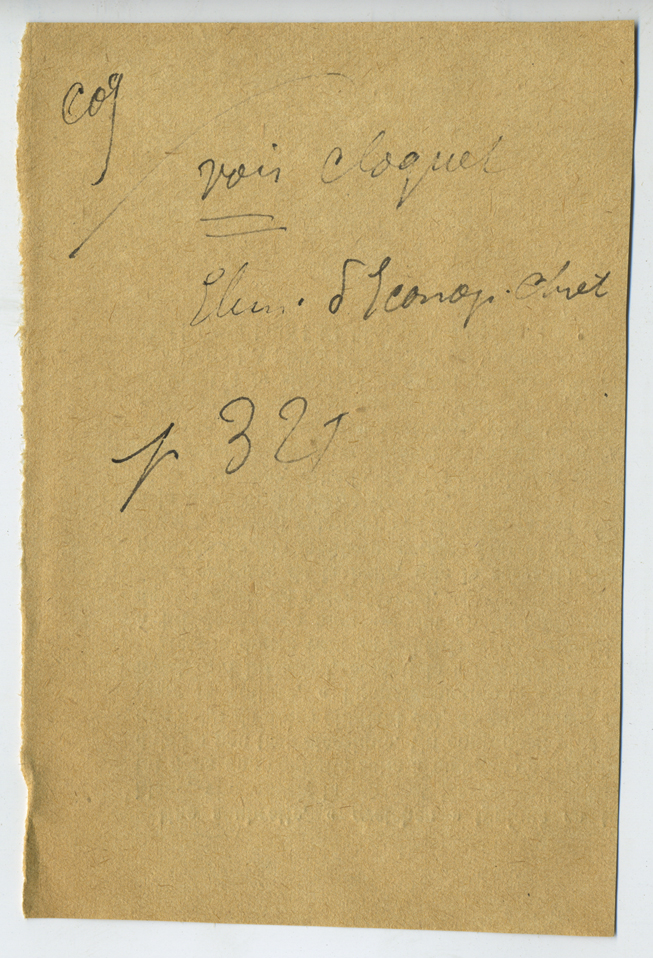 coq
voir Cloquet
Elem. d'Iconog. Chret
p 321